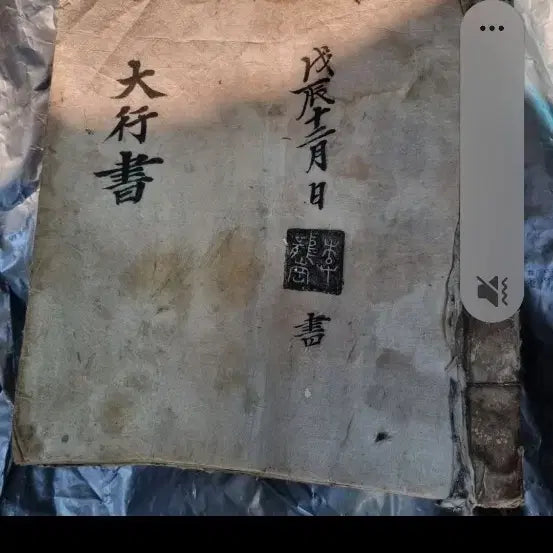 戊辰十二月 日
書
大行書